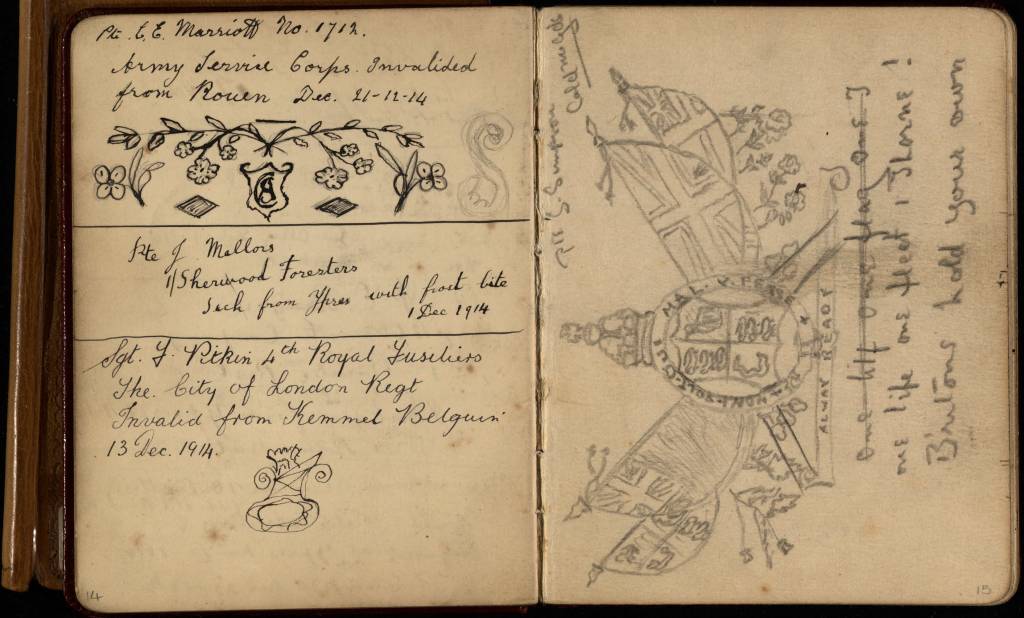 Pte. E. E. Marriott No. 1712.
Army Service Corps. Invalided
from Rouen Dec. 21-12-14
CA
Pte J Mellors
1/Sherwood Foresters
Sick from Ypres with frost bite
1 Dec 1914
Sgt. F. Pitkin 4th Royal Fusiliers
The. City of London Regt
Invalid from Kemmel Belguin
13 Dec. 1914.
14
Pte G. Simpson
Coldm Gds
MAL. Y. PENSE
HONI. SOIT. QUI
ALWAY READY
one life one flag one
one life one fleet 1 Thorne!
B'ritons hold your own
15